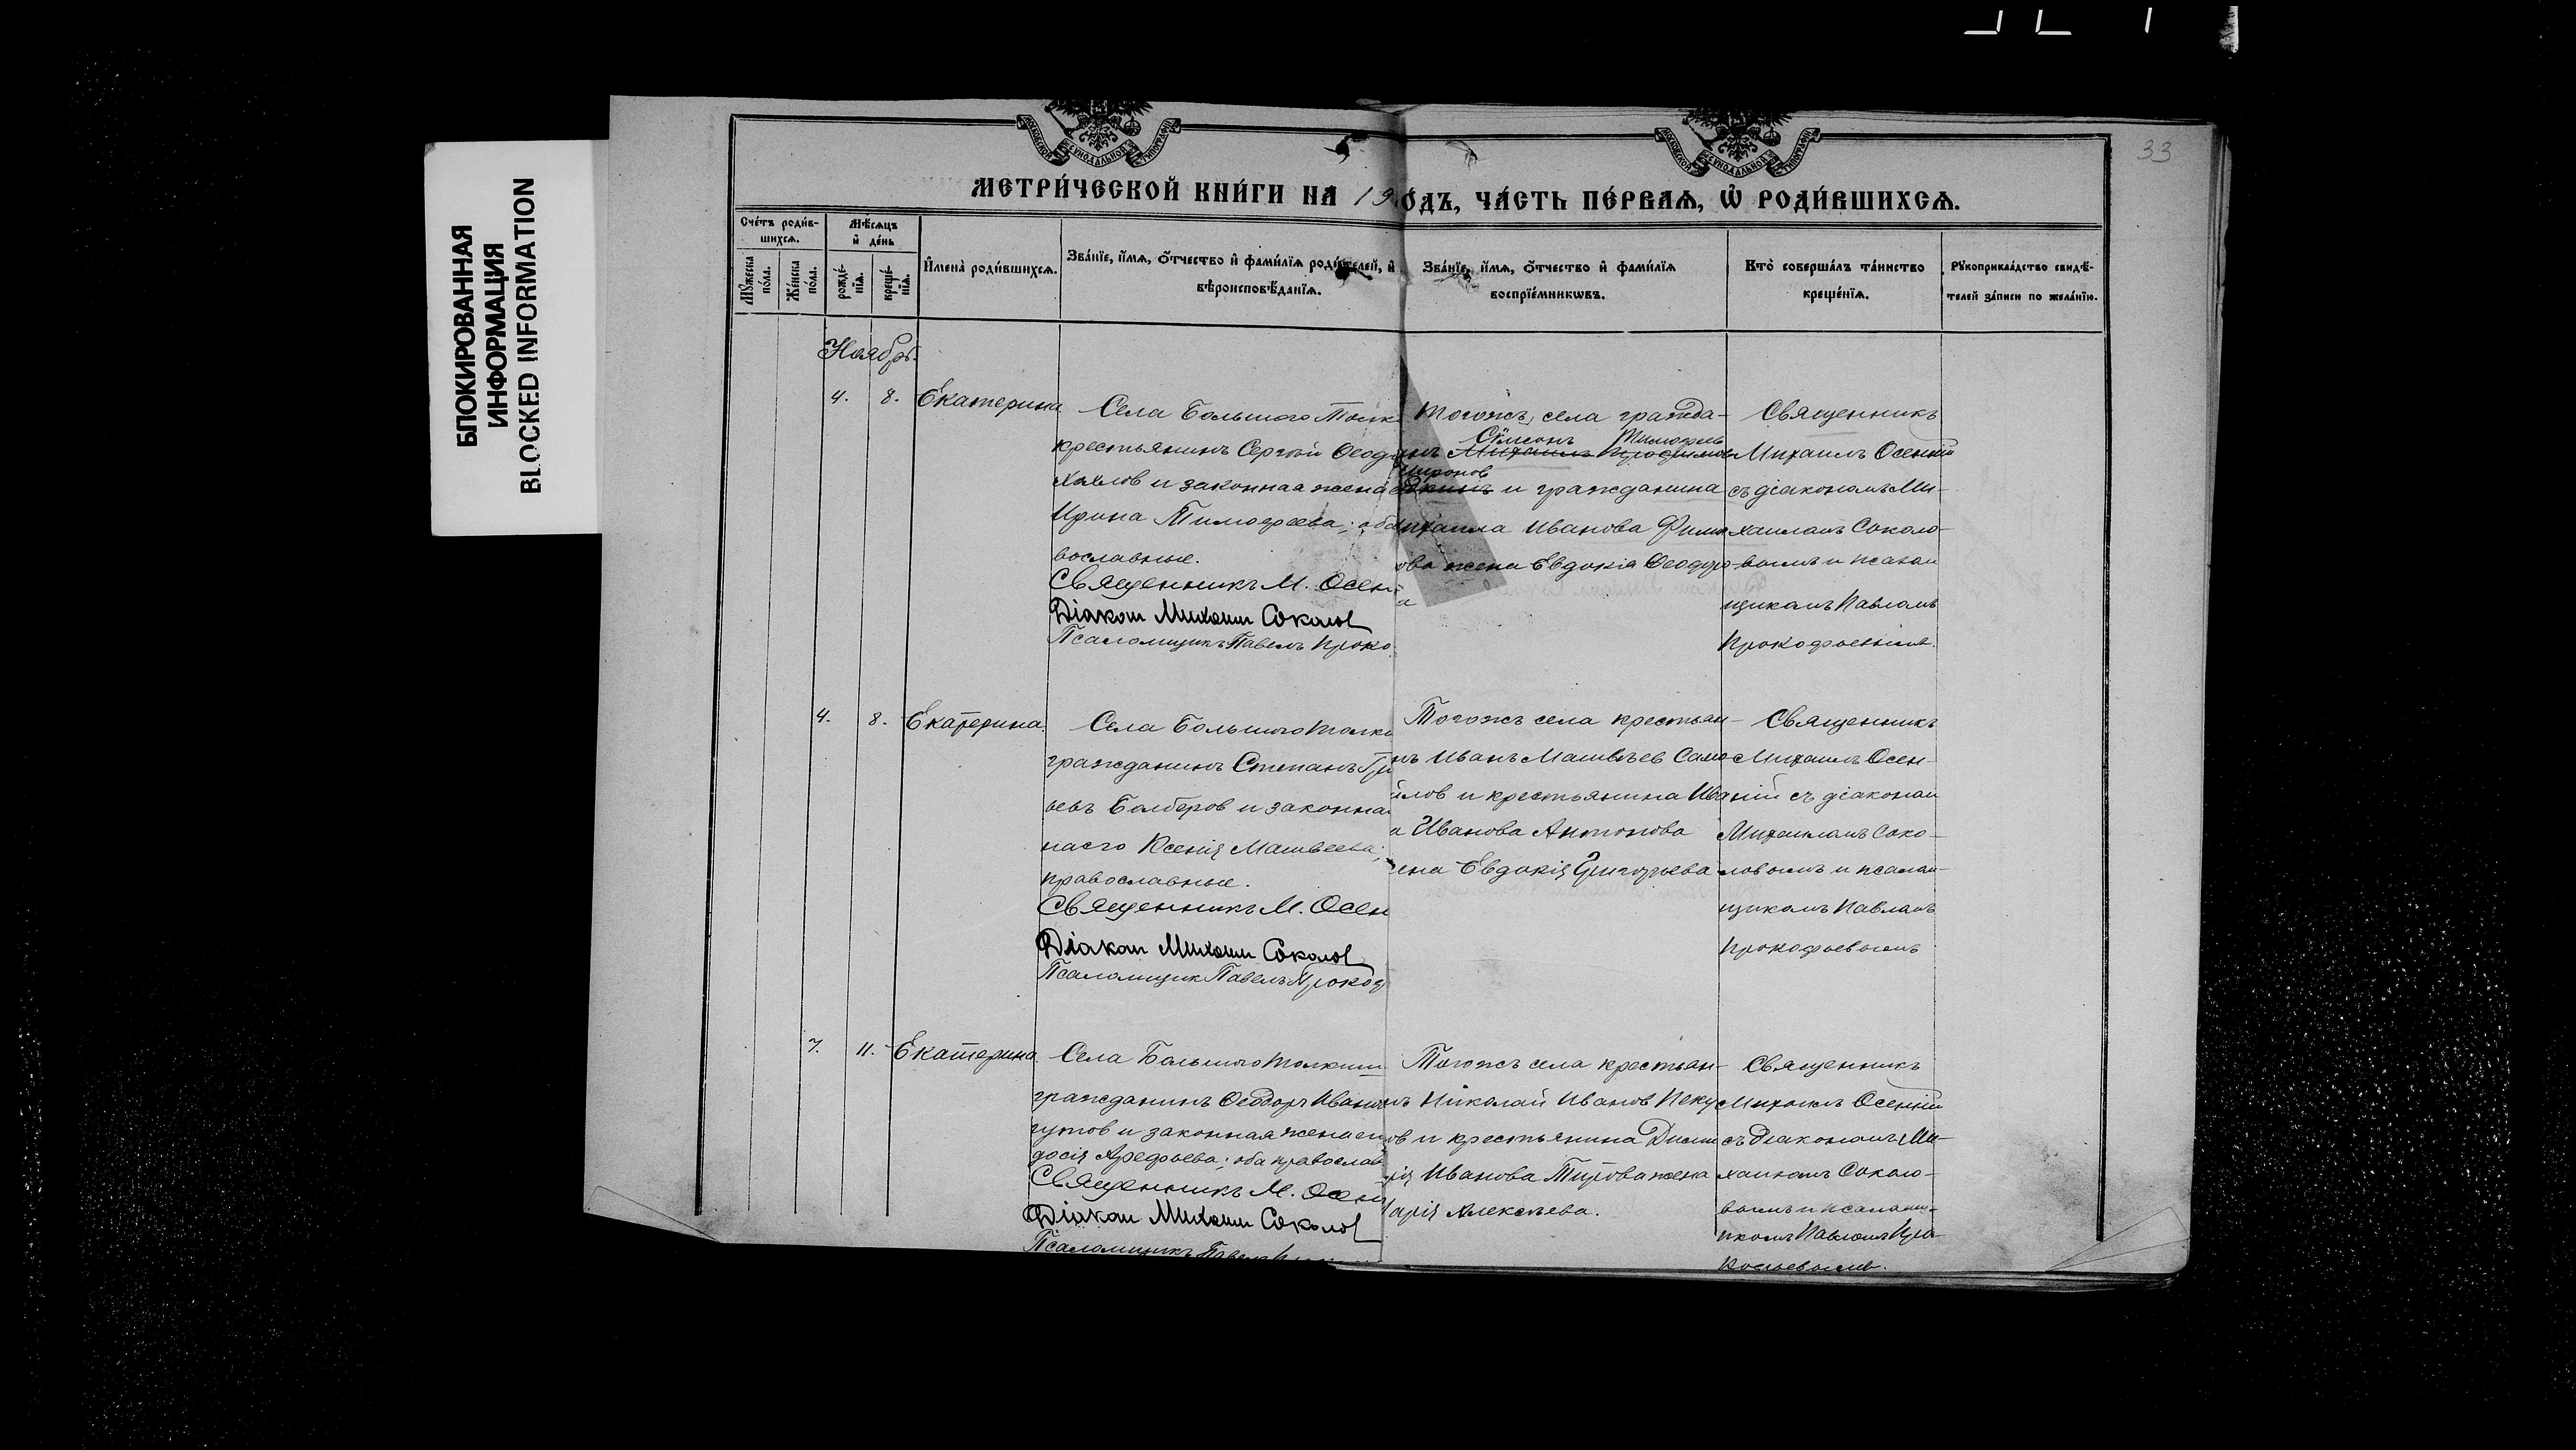 БЛОКИРОВАННАЯ
ИНФОРМАЦИЯ
BLOCKED INFORMATION
33
МОСКОВСКОЙ СѴНОДАЛЬНОЙ ТИПОГРАФІИ
МОСКОВСКОЙ СѴНОДАЛЬНОЙ ТИПОГРАФІИ
МЕТРИ́ЧЕСКОЙ КНИ́ГИ НА 19 ОДЪ, ЧА́СТЬ ПЕ́РВАѦ, Ѡ РОДИ́ВШИХСѦ.
Сче́тъ роди́в-
шихсѧ.
Мѣ́сѧцъ
и де́нь
Мꙋ́жеска
по́ла.
Же́нска
по́ла.
рожде́-
нїѧ.
креще́-
нїѧ.
Имена̀ роди́вшихсѧ.
Зва́нїе, и́мѧ, ѻ́тчество и фами́лїѧ роди́телей, и
вѣроисповѣ́данїѧ.
Зва́нїе, и́мѧ, ѻ́тчество и фами́лїѧ
воспрїе́мникѡвъ.
Кто̀ соверша́лъ та́инство
креще́нїѧ.
Рꙋкоприкла́дство свидѣ́-
телей за́писи по жела́нїю.
Ноябрь.
4. 8. Екатерина
Села Большого Толк
крестьянинъ Сергѣй Ѳеод
Хохлов и законная жена
Ирина Тимоѳеева; оба
вославные.
Священникъ М. Осен
Діакон Михаил Соколов
Псаломщикъ Павелъ Проко
Тогожъ села гражда-
Сѵмеонъ Тимоѳеев
инъ Михаилъ
и гражданина
Михаила Иванова
ова жена Евдокія Ѳеодоро
а
Священникъ
Михаилъ Осенній
съ діакономъ Ми-
хаиломъ Соколо-
вымъ и псалом
щикомъ Павломъ
Прокофьевымъ.
4. 8. Екатерина.
Села Большого Толки
гражданинъ Степанъ Гри
ьевъ Балберов и законная
наего Ксенія Матвѣева;
православные.
Священникъ М. Осен
Діакон Михаил Соколов
Псаломщик Павелъ Прокоф
Тогожъ села крестьян-
нъ Иванъ Матвѣев Само
йлов и крестьянина Ива
а Иванова Антонова
ена Евдокія Григорьева
Священникъ
Михаилъ Осен-
ній съ діаконом
Михаиломъ Соко-
ловымъ и псалом-
щикомъ Павломъ
Прокофьевымъ
7. 11. Екатерина.
Села Большого Толкиш
гражданинъ Ѳеодоръ Иванов
гутов и законная жена ег
досія Арефьева; оба православ
Священникъ М. Осен
Діакон Михаил Соколов
Псаломщикъ Павелъ
Тогожъ села крестьян-
нъ Николай Иванов Пеку
ов и крестьянина Дими
рія Иванова Титова жена
арія Алексѣева.
Священникъ
Михаилъ Осенній
съ діакономъ Ми-
хаиломъ Соколо-
вымъ и псаломщ-
икомъ Павломъ Про-
кофьевымъ.